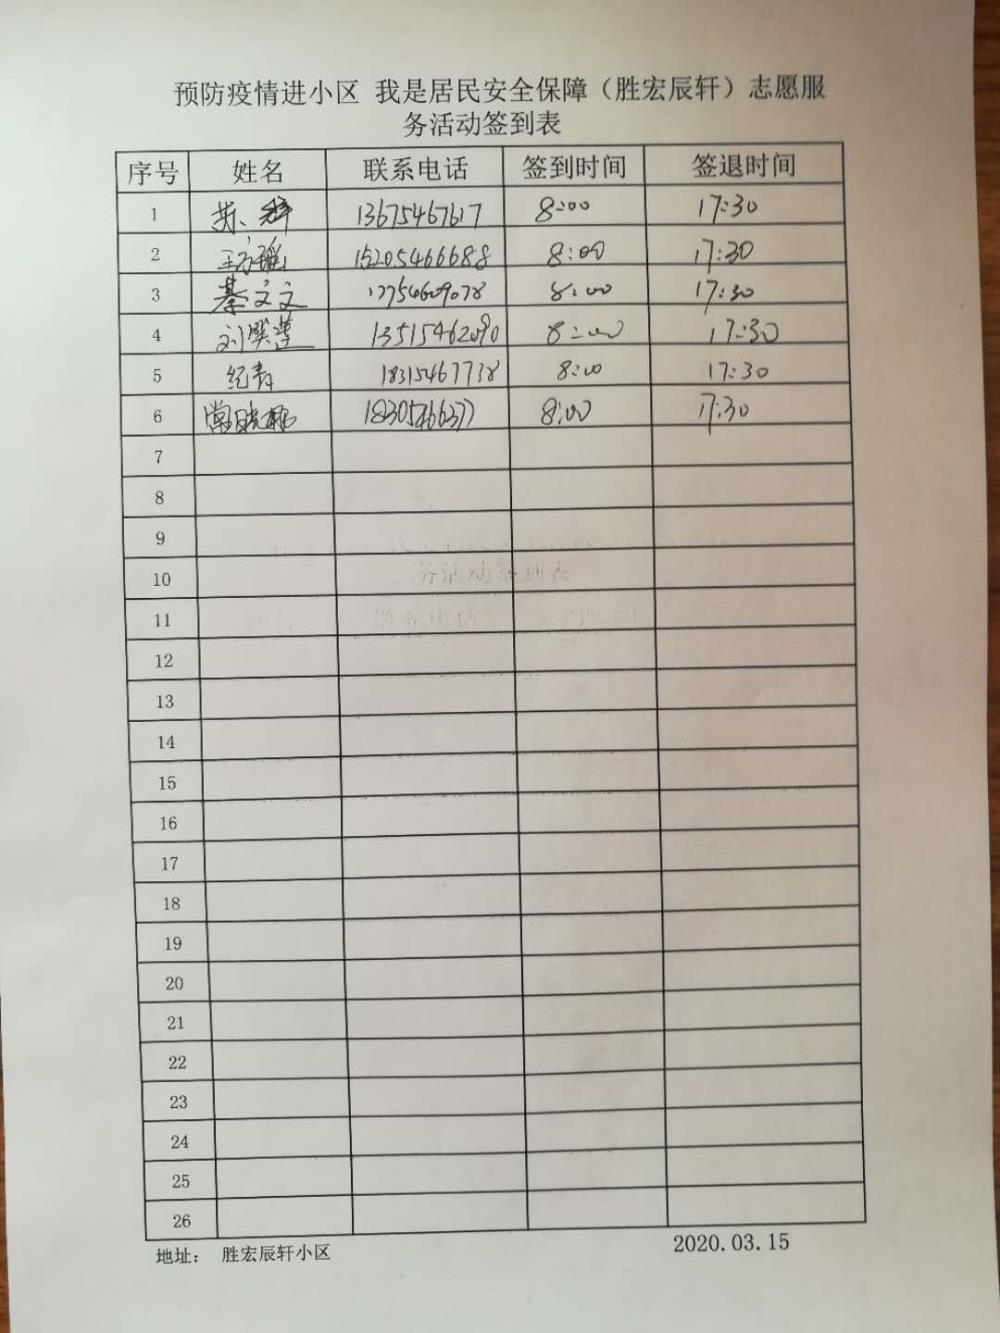 预防疫情进小区 我是居民安全保障（胜宏辰轩）志愿服
务活动签到表
序号 姓名 联系电话 签到时间 签退时间
1 13675467617 8:00 17:30
2 15205466688 8:00 17:30
3 綦文文 17754609078 8:00 17:30
4 13515462090 8:00 17:30
5 纪青 18315467738 8:00 17:30
6 18305466377 8:00 17:30
7
8
9
10
11
12
13
14
15
16
17
18
19
20
21
22
23
24
25
26
地址： 胜宏辰轩小区 2020.03.15